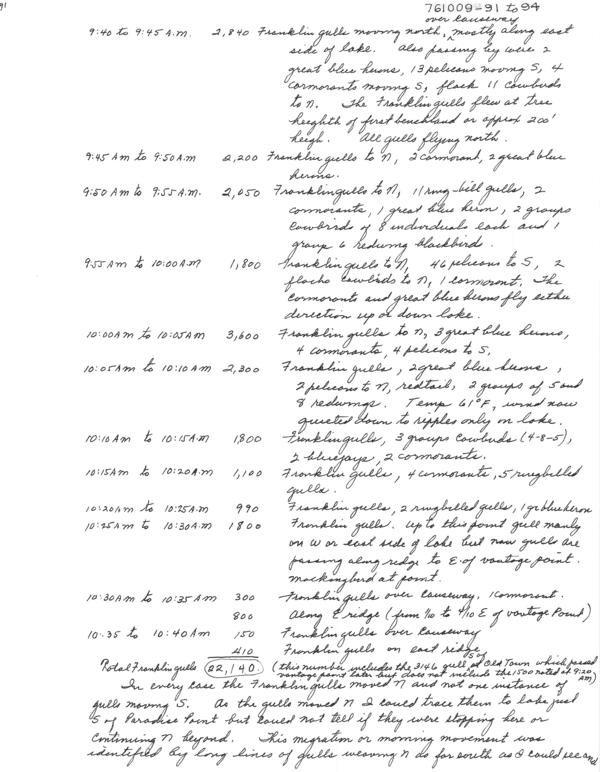 91
761009-91 to 94
over causeway
9:40 to 9:45 A.M. 2,840 Franklin gulls moving north, mostly along east
side of lake. Also passing by were 2
great blue herons, 13 pelicans moving S, 4
cormorants moving S, flock 11 cowbirds
to N. The Franklin gulls flew at tree
heighth of first benchland or approx 200'
heigh. All gulls flying north.
9:45 Am to 9:50 A.M 2,200 Franklin gulls to N, 2 cormorant, 2 great blue
herons.
9:50 Am to 9:55 A.M. 2,050 Franklin gulls to N, 11 ring-bill gulls, 2
cormorants, 1 great blue heron, 2 groups
cowbirds of 8 individuals each and 1
group 6 redwing blackbirds.
9:55 Am to 10:00 A.M 1,800 Franklin gulls to N, 46 pelicans to S, 2
flocks cowbirds to N, 1 cormorant. The
cormorants and great blue herons fly either
direction up or down lake.
10:00 Am to 10:05 A.M 3,600 Franklin gulls to N, 3 great blue herons,
4 cormorants, 4 pelicans to S.
10:05 A.M to 10:10 A.M 2,300 Franklin gulls, 2 great blue herons,
2 pelicans to N, redtail, 2 groups of 5 and
8 redwings. Temp 61°F, wind now
quieted down to ripples only on lake.
10:10 Am to 10:15 A.M 1,800 Franklin gulls, 3 groups cowbirds (4-8-5),
2 bluejays, 2 cormorants.
10:15 Am to 10:20 A.M 1,100 Franklin gulls, 4 cormorants, 5 ringbilled
gulls.
10:20 Am to 10:25 A.M 990 Franklin gulls, 2 ringbilled gulls, 1 gr blue heron
10:25 Am to 10:30 A.M 1800 Franklin gulls. Up to this point gull mainly
on W or east side of lake but now gulls are
passing along ridge to E. of vantage point.
mockingbird at point.
10:30 Am to 10:35 A.M 300 Franklin gulls over causeway, 1 cormorant.
800 Along E ridge (from 1/10 to 4/10 E of vantage Point)
10:35 to 10:40 A.M 150 Franklin gulls over Causeway
410 Franklin gulls on east ridge
Total Franklin gulls 22,140. (this number includes the 3146 gull S of Old Town which passed
vantage point later but does not include the 1500 noted at 9:20 AM)
In every case the Franklin gulls moved N and not one instance of
gulls moving S. As the gulls moved N I could trace them to lake just
S of Paradise Point but could not tell if they were stopping here or
continuing N beyond. This migration or morning movement was
identified by long lines of gulls weaving N as far south as I could see and